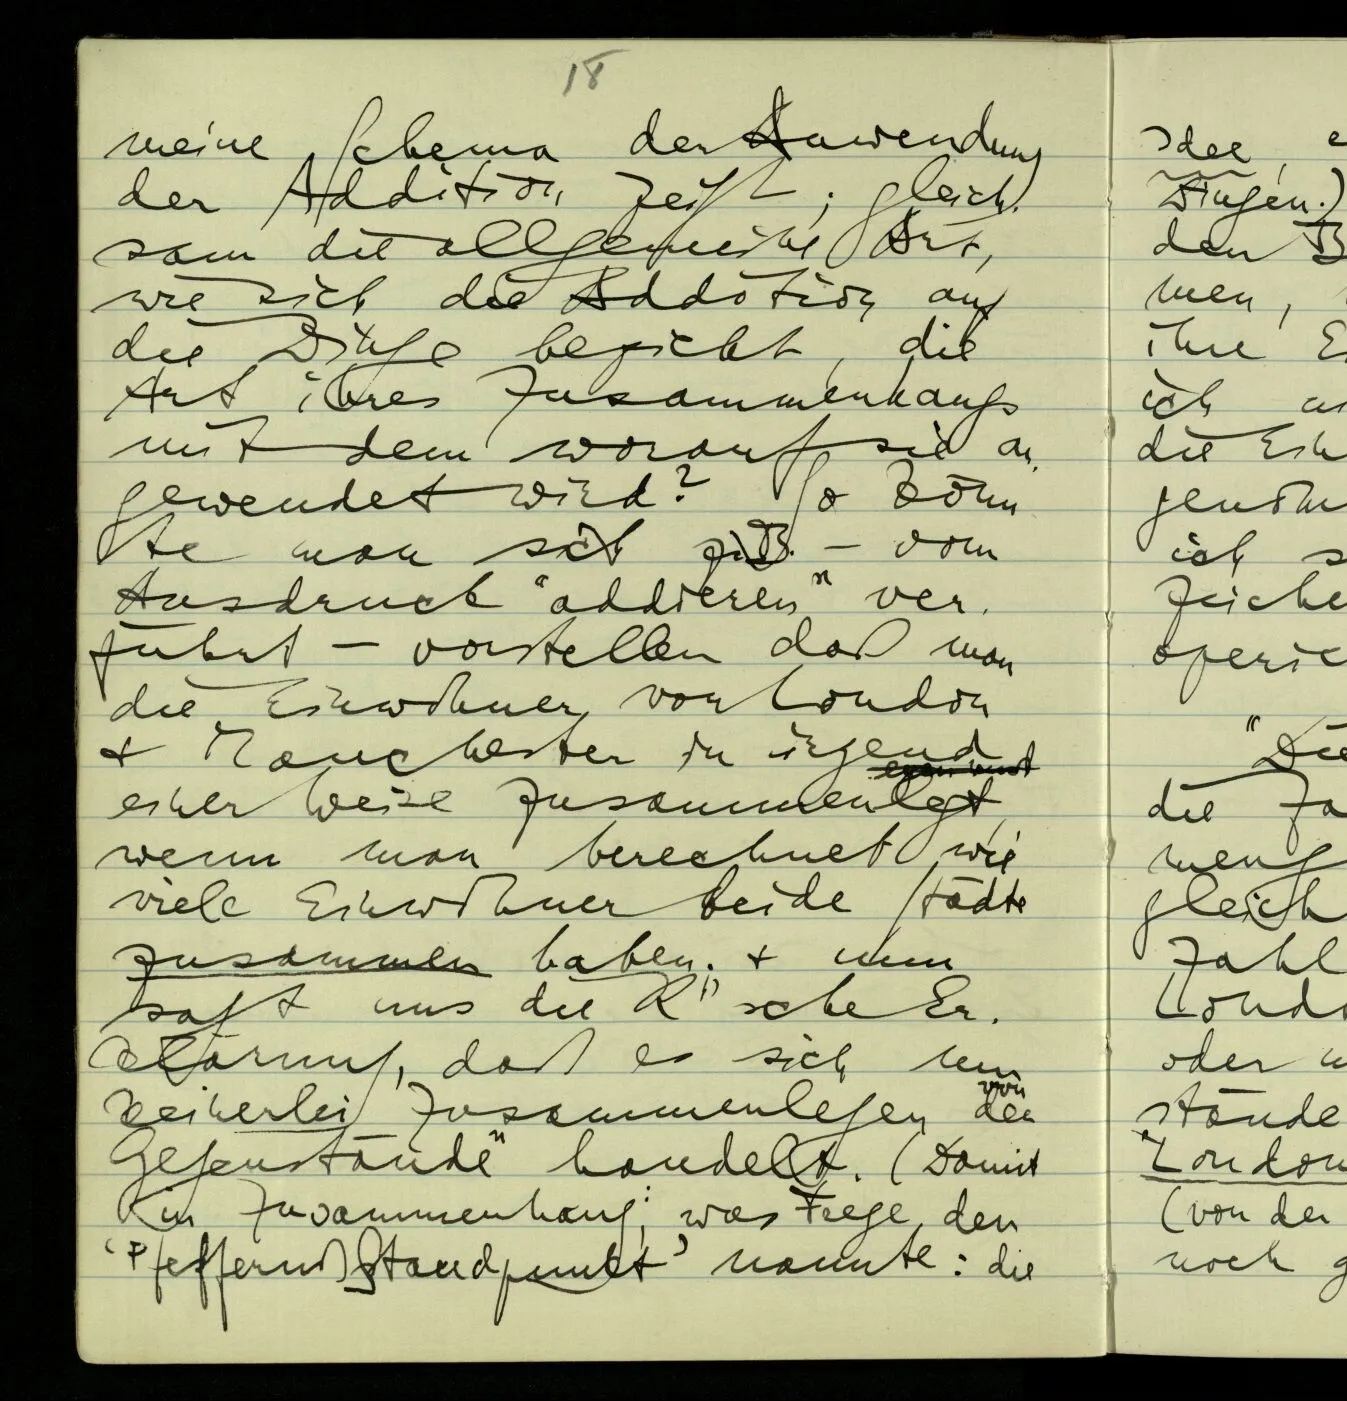 18
meine Schema der Anwendung
der Addition zeigt; gleich-
sam die allgemeine Art,
wie sich die Addition auf
die Dinge bezieht, die
Art ihres Zusammenhangs
mit dem worauf sie an-
gewendet wird? So könn
te man sich z.B. – vom
Ausdruck "addieren" ver-
führt – vorstellen daß man
die Einwohner von London
+ Manchester in irgend
einer Weise zusammenlegt,
wenn man berechnet wie
viele Einwohner beide Städte
zusammen haben; + nun
sagt uns die R''sche Er-
klärung, daß es sich um
keinerlei Zusammenlegen von
der
Gegenstände" handelt. (Damit
im Zusammenhang; was Frege den
'Pfeffernuß Standpunkt' nannte: die
Idee,
Dingen.)
den B
men,
ihre E
ich
die Ein
genom
ich s
Zeiche
operie
"Die
die Za
meng
gleich
Zahl
Londo
oder
stände
"London
(von der
noch g